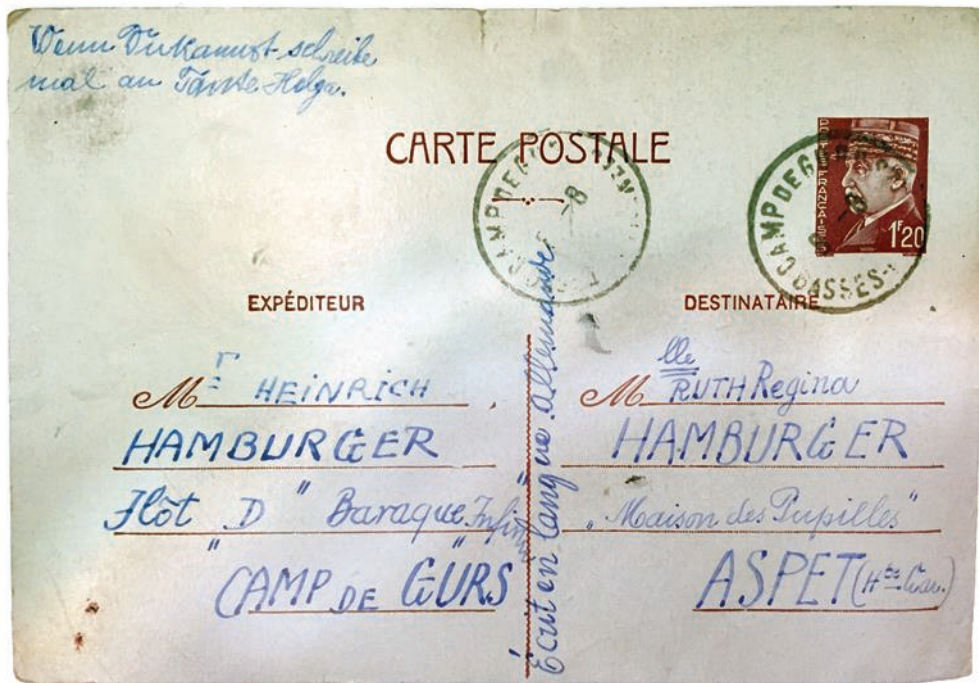 Wenn Du kannst schreibe
mal an Tante Helga.
CARTE POSTALE
POSTES FRANÇAISES
1F20
CAMP DE G
CAMP DE G
BASSES-
EXPÉDITEUR
Mr HEINRICH
HAMBURGER
Ilôt "D" Baraque
CAMP DE GURS
Écrit en langue allemande
DESTINATAIRE
Mlle RUTH Regina
HAMBURGER
"Maison des Pupilles"
ASPET (Hte Gar.)